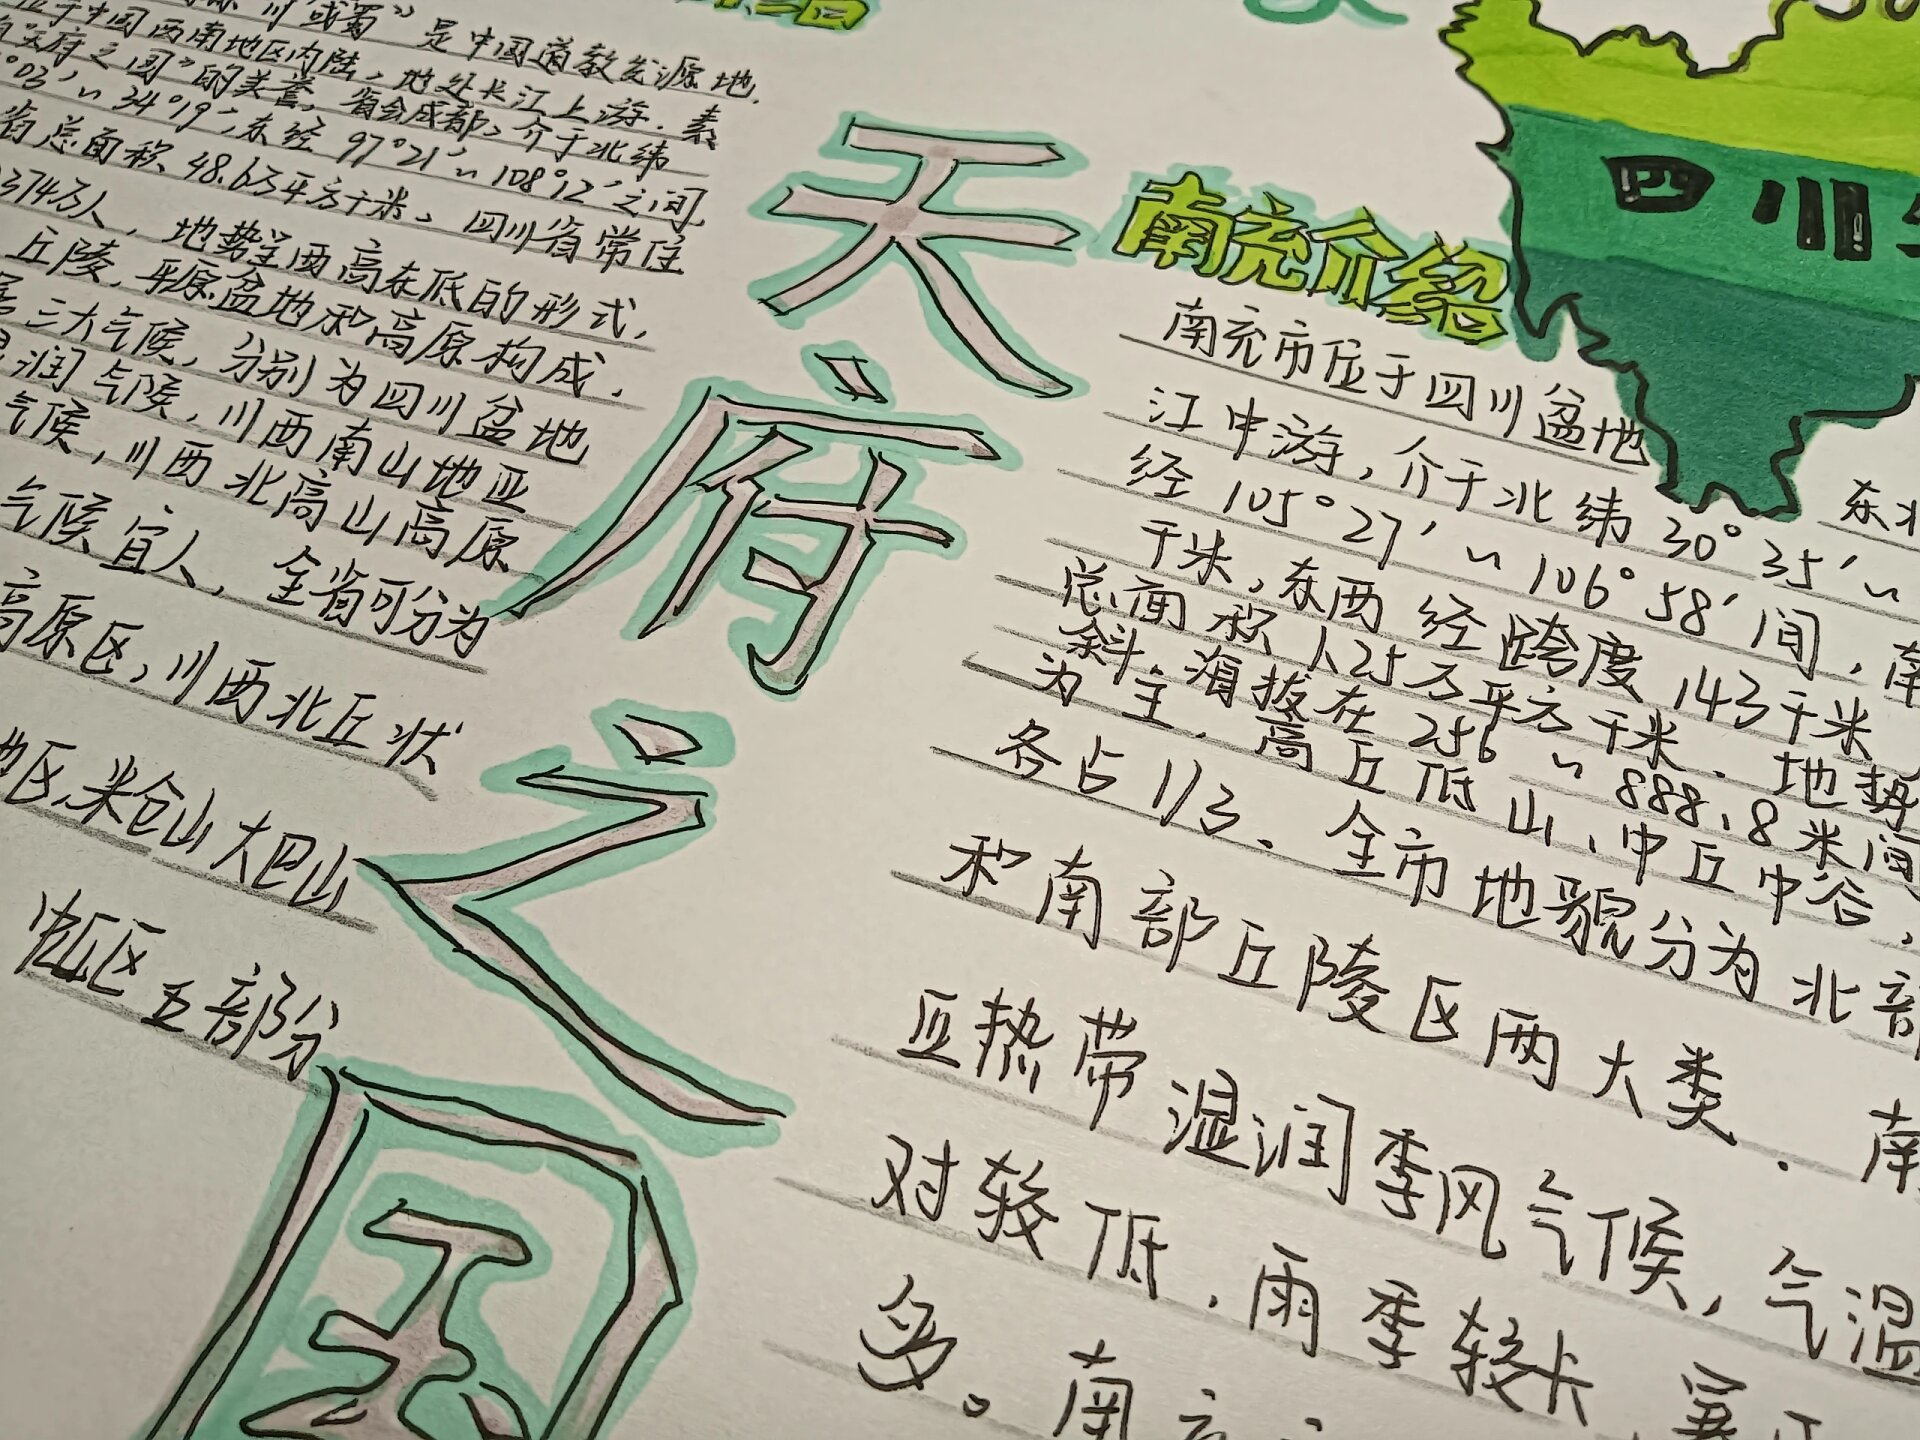 川或蜀”是中国道教发源地.
位于中国西南地区内陆,地处长江上游.素
天府之国”的美誉,省会成都,介于北纬
°03′~34°19′,东经97°21′~108°12′之间,
省总面积48.6万平方千米,四川省常住
374万人,地势呈西高东低的形式,
丘陵,平原盆地和高原构成.
三大气候,分别为四川盆地
润气候,川西南山地亚
气候,川西北高山高原
气候宜人,全省可分为
高原区,川西北丘状
地区,米仓山大巴山
区五部份
天府之国
南充介绍
四川
南充市位于四川盆地 东北
江中游,介于北纬30°35′~
经105°27′~106°58′间,南
千米,东西经跨度143千米
总面积1.25万平方千米.地势
斜,海拔在256~888.8米间
为主.高丘低山,中丘中谷,
各占1/3.全市地貌分为北部
和南部丘陵区两大类.南
亚热带湿润季风气候,气温
对较低,雨季较长
多。南充